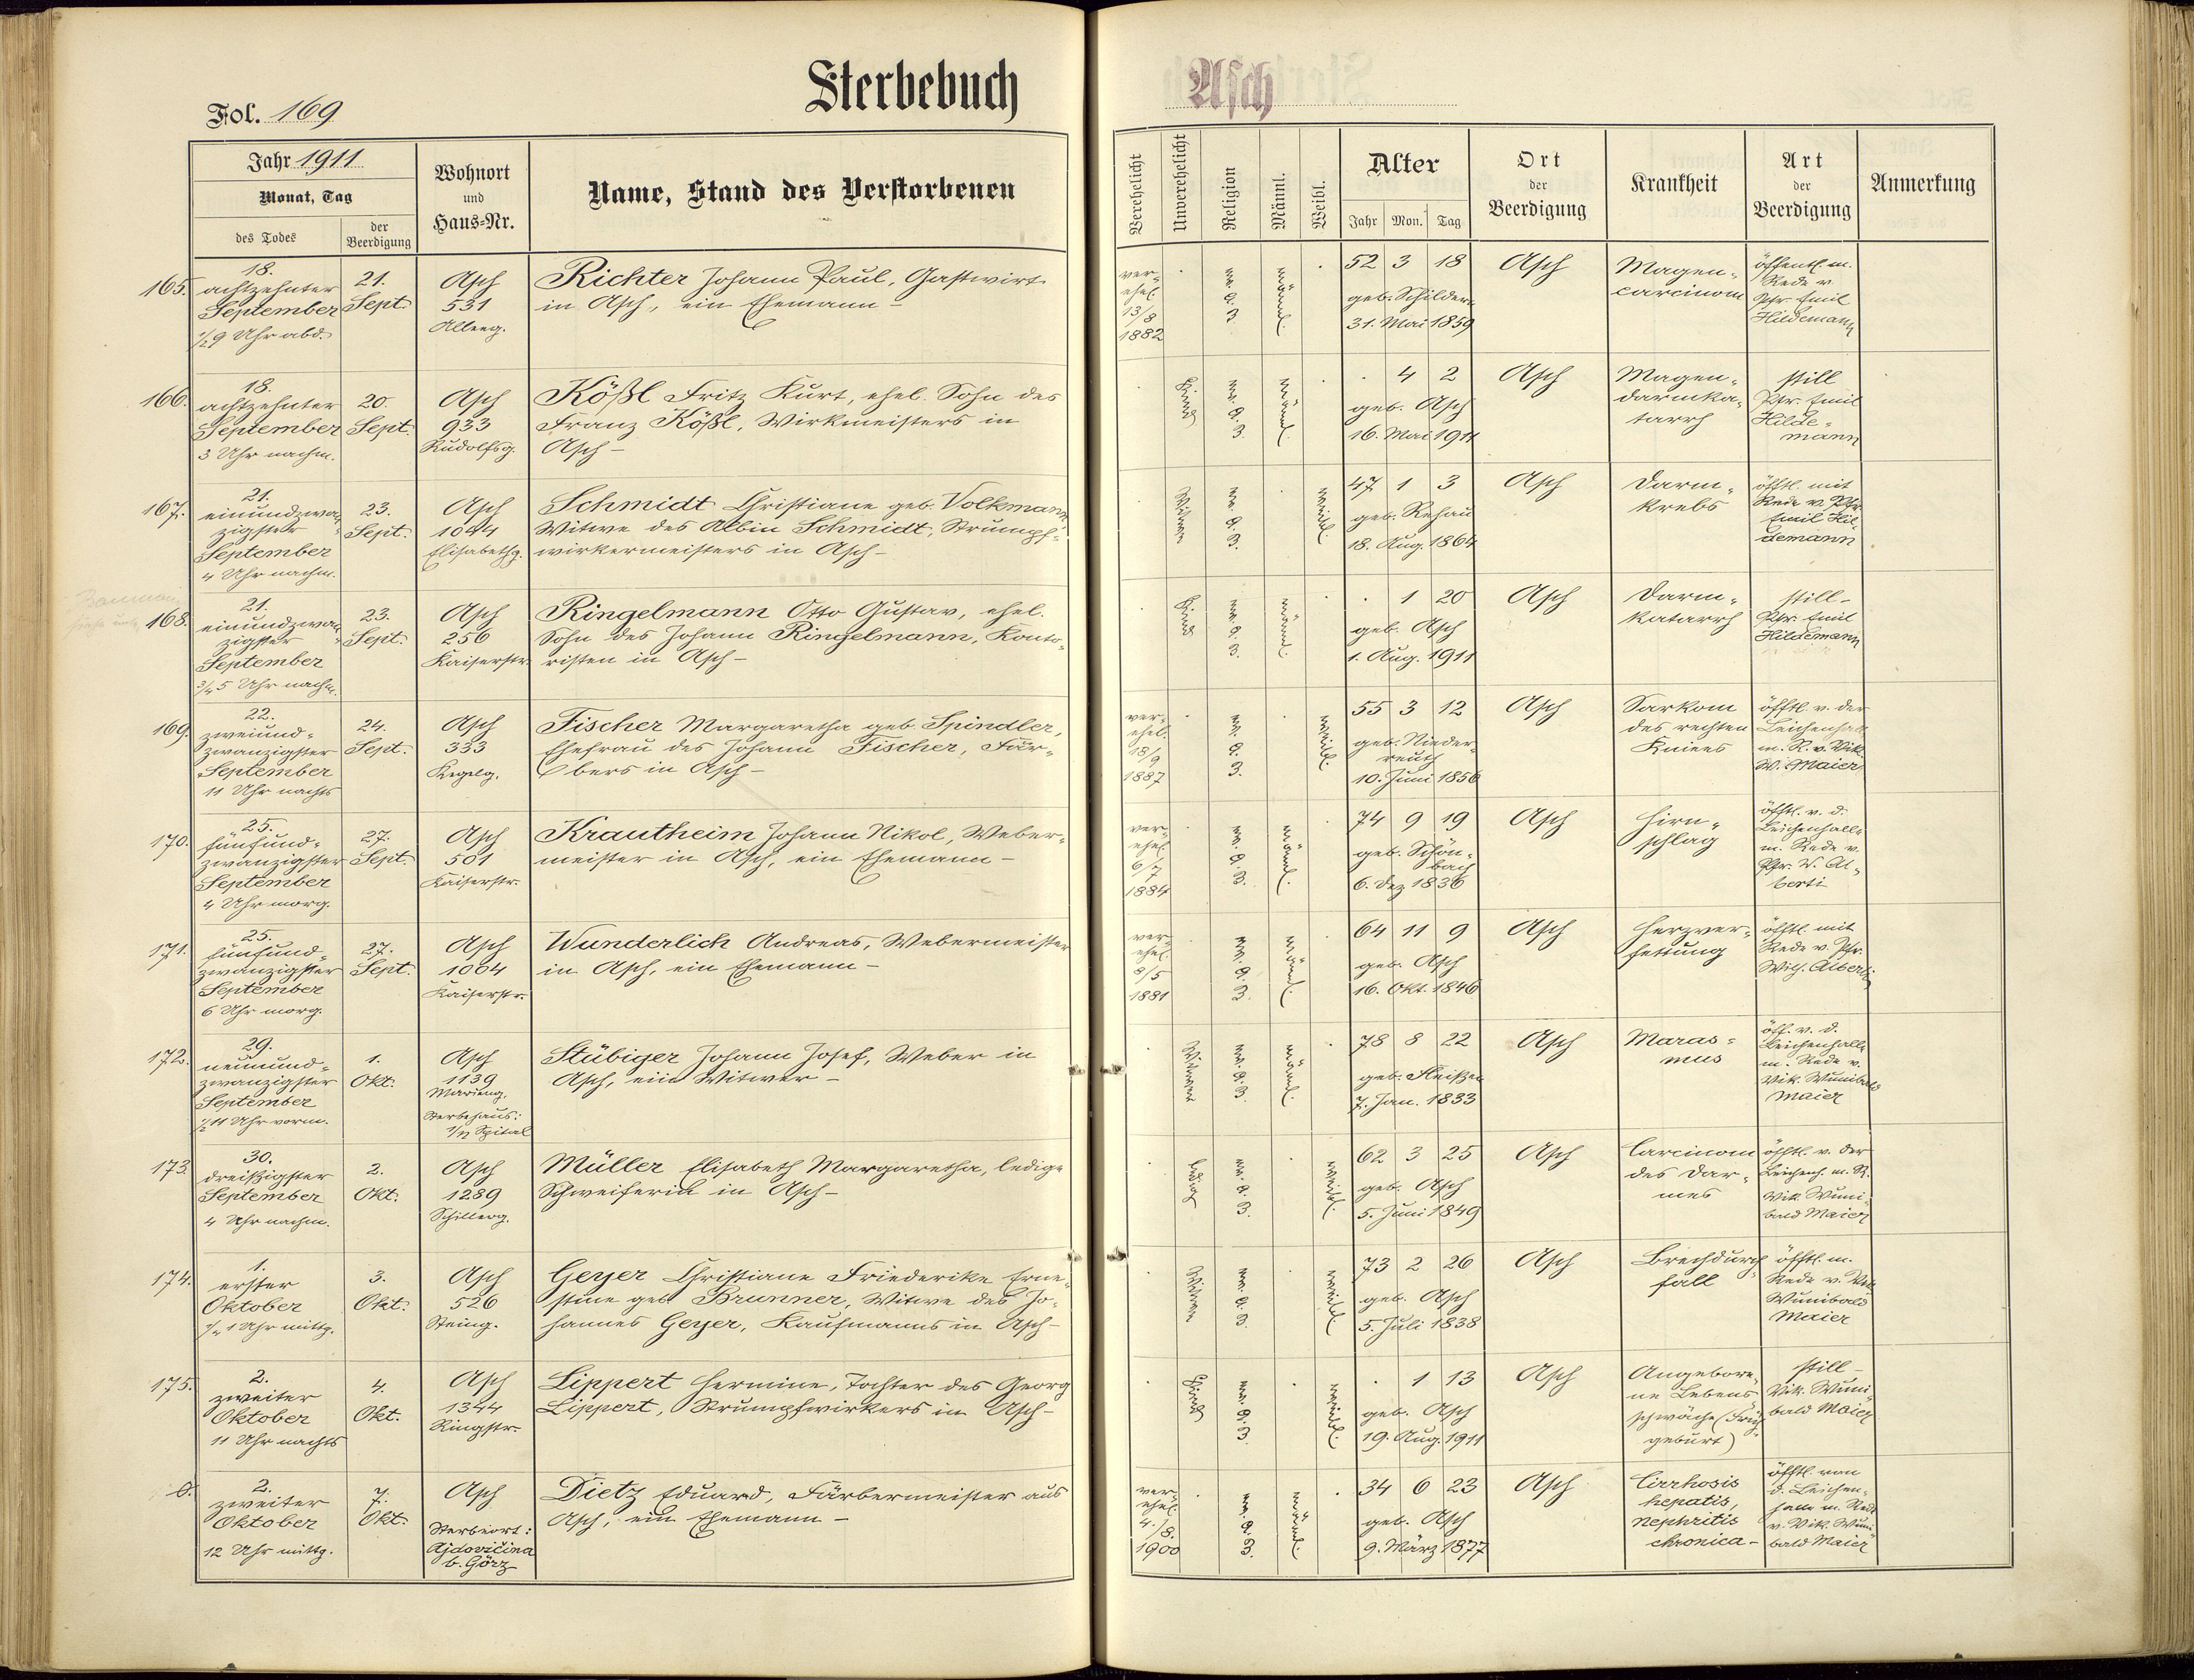 Sterbebuch
Asch
Fol. 169
Jahr 1911
Monat, Tag
des Todes
der Beerdigung
Wohnort
und
Haus=Nr.
Name, Stand des Verstorbenen
Verehelicht
Unverehelicht
Religion
Männl.
Weibl.
Alter
Jahr Mon. Tag
Ort
der
Beerdigung
Krankheit
Art
der
Beerdigung
Anmerkung
165.
18.
achtzehnter
September
½9 Uhr abd.
21.
Sept.
Asch
531
Alleeg.
Richter Johann Paul, Gastwirt
in Asch, ein Ehemann –
ver-
ehel.
13/8
1882
männl.
52 3 18
geb. Schildern
31. Mai 1859
Asch
Magen-
carcinom
öffentl. m.
Rede v.
Pfr. Emil
Hildemann
166.
18.
achtzehnter
September
3 Uhr nachm.
20.
Sept.
Asch
933
Rudolfsg.
Kößl Fritz Kurt, ehel. Sohn des
Franz Kößl, Wirkmeisters in
Asch –
Kind
männl.
4 2
geb. Asch
16. Mai 1911
Asch
Magen-
darmka-
tarrh
still
Pfr. Emil
Hilde-
mann
167.
21.
einundzwan-
zigster
September
4 Uhr nachm.
23.
Sept.
Asch
1044
Elisabethg.
Schmidt Christiane geb. Volkmann,
Witwe des Albin Schmidt, Strumpf-
wirkermeisters in Asch –
Witwe
weibl.
47 1 3
geb. Rehau
18. Aug. 1864
Asch
Darm-
krebs
öfftl. mit
Rede v. Pfr.
Emil Hil-
demann
168.
21.
einundzwan-
zigster
September
¾5 Uhr nachm.
23.
Sept.
Asch
256
Kaiserstr.
Ringelmann Otto Gustav, ehel.
Sohn des Johann Ringelmann, Konto-
risten in Asch –
Kind
männl.
1 20
geb. Asch
1. Aug. 1911
Asch
Darm-
katarrh
still –
Pfr. Emil
Hildemann
169.
22.
zweiund-
zwanzigster
September
11 Uhr nachts
24.
Sept.
Asch
333
Kegelg.
Fischer Margaretha geb. Spindler,
Ehefrau des Johann Fischer, Fär-
bers in Asch –
ver-
ehel.
18/9
1887
weibl.
55 3 12
geb. Nieder-
reuth
10. Juni 1856
Asch
Sarkom
des rechten
Kniees
öfftl. v. der
Leichenhalle
m. R. v. Vik.
W. Maier
170.
25.
fünfund-
zwanzigster
September
4 Uhr morg.
27.
Sept.
Asch
501
Kaiserstr.
Krautheim Johann Nikol, Weber-
meister in Asch, ein Ehemann –
ver-
ehel.
6/7
1884
männl.
74 9 19
geb. Schön-
bach
6. Dez 1836
Asch
Hirn-
schlag
öfftl. v. d.
Leichenhalle
m. Rede v.
Pfr. W. Al-
berti
171.
25.
fünfund-
zwanzigster
September
6 Uhr morg.
27.
Sept.
Asch
1004
Kaiserstr.
Wunderlich Andreas, Webermeister
in Asch, ein Ehemann –
ver-
ehel.
8/5
1881
männl.
64 11 9
geb. Asch
16. Okt. 1846
Asch
Herzver-
fettung
öfftl. mit
Rede v. Pfr.
Wilh. Alberti
172.
29.
neunund-
zwanzigster
September
½11 Uhr vorm.
1.
Okt.
Asch
1139
Marieng.
Sterbehaus:
Spital
Stübiger Johann Josef, Weber in
Asch, ein Witwer –
Witwer
männl.
78 8 22
geb. Steinßen
7. Jan. 1833
Asch
Maras-
mus
öff. v. d.
Leichenhalle
m. Rede v.
Vik. Wunibald
Maier
173.
30.
dreißigster
September
4 Uhr nachm.
2.
Okt.
Asch
1289
Schillerg.
Müller Elisabeth Margaretha, ledige
Schweiferin in Asch –
ledig
weibl.
62 3 25
geb. Asch
5. Juni 1849
Asch
Carcinom
des Dar-
mes
öfftl. v. der
Leichenh. m. R.
Vik. Wuni-
bald Maier
174.
1.
erster
Oktober
1 Uhr mittg.
3.
Okt.
Asch
526
Steing.
Geyer Christiane Friederike Erne-
stine geb. Brunner, Witwe des Jo-
hannes Geyer, Kaufmanns in Asch –
Witwe
weibl.
73 2 26
geb. Asch
5. Juli 1838
Asch
Brechdurch-
fall
öfftl. m.
Rede v. Vik.
Wunibald
Maier
175.
2.
zweiter
Oktober
11 Uhr nachts
4.
Okt.
Asch
1344
Ringstr.
Lippert Hermine, Tochter des Georg
Lippert, Strumpfwirkers in Asch –
Kind
weibl.
1 13
geb. Asch
19. Aug. 1911
Asch
Angebore-
ne Lebens-
schwäche (Früh-
geburt)
still –
Vik. Wuni-
bald Maier
2.
zweiter
Oktober
12 Uhr mittg.
7.
Okt.
Asch
Sterbeort:
Ajdovičina
b. Görz
Dietz Eduard, Färbermeister aus
Asch, ein Ehemann –
ver-
ehel.
4./8.
1900
männl.
34 6 23
geb. Asch
9. März 1877
Asch
Cirrhosis
hepatis,
nephritis
chronica –
öfftl. von
d. Leichen-
halle m. Rede
v. Vik. Wuni-
bald Maier